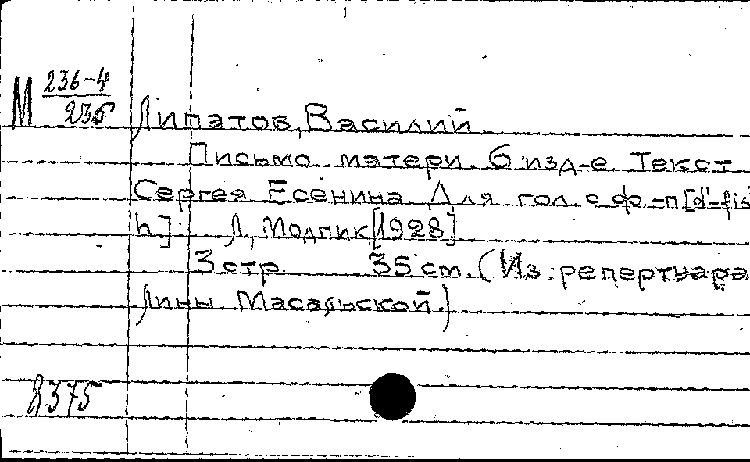 М 236-4
235
Липатов, Василий
Письмо матери. 6 изд-е. Текст
Сергея Есенина Для гол. с ф-п [d'-fis
h.] Л, Модпик [1928]
3 стр. 35 см. (Из репертуара
Лины Масальской.)
8375